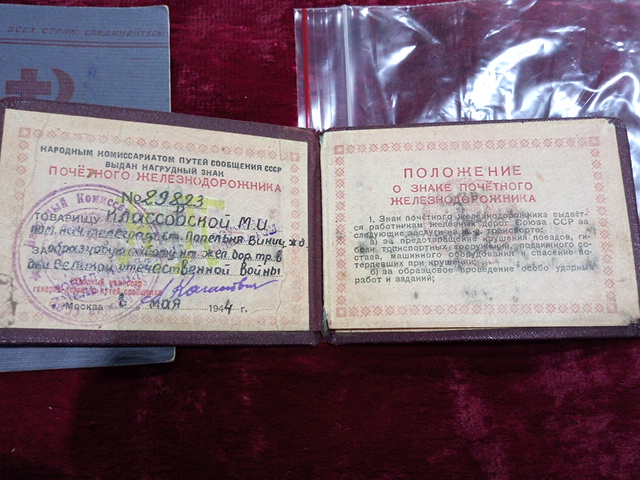 ВСЕХ СТРАН, СОЕДИНЯЙТЕСЬ
НАРОДНЫМ КОМИССАРИАТОМ ПУТЕЙ СООБЩЕНИЯ СССР
ВЫДАН НАГРУДНЫЙ ЗНАК
ПОЧЁТНОГО ЖЕЛЕЗНОДОРОЖНИКА
№29823
ТОВАРИЩУ Классовской М.И.
телеграф ст. Попельня Винниц. ж.д.
за образцовую работу на жел. дор. тр. в
дни Великой отечественной войны
Народный комиссар
генерал путей сообщения
Москва „ 2 " мая 1944 г.
ПОЛОЖЕНИЕ
О ЗНАКЕ ПОЧЁТНОГО
ЖЕЛЕЗНОДОРОЖНИКА
1. Знак почётного железнодорожника выдаёт-
ся работникам железных дорог Союза ССР за
следующие заслуги на ж.-д. транспорте:
а) за предотвращение крушения поездов, ги-
бели транспортных сооружений, подвижного со-
става, машинного оборудования и спасение по-
терпевших при крушении;
б) за образцовое проведение особо ударных
работ и заданий;